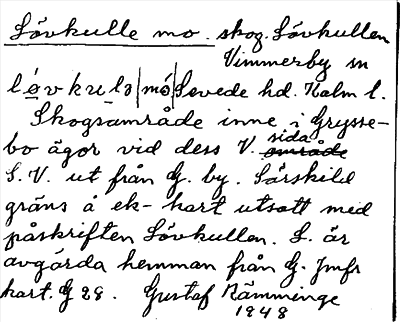 Lövkulle mo. skog. Lövkullen
Vimmerby sn
lövkulə|mó| Sevede hd. Kalm l.
Skogsområde inne i Grysse-
bo ägor vid dess V. sida
S.V. ut från G. by. Särskild
gräns å ek-kart utsatt med
påskriften Lövkullen. L. är
avgärda hemman från G. Jmfr
kart. G 28. Gustaf Rämminge
1948